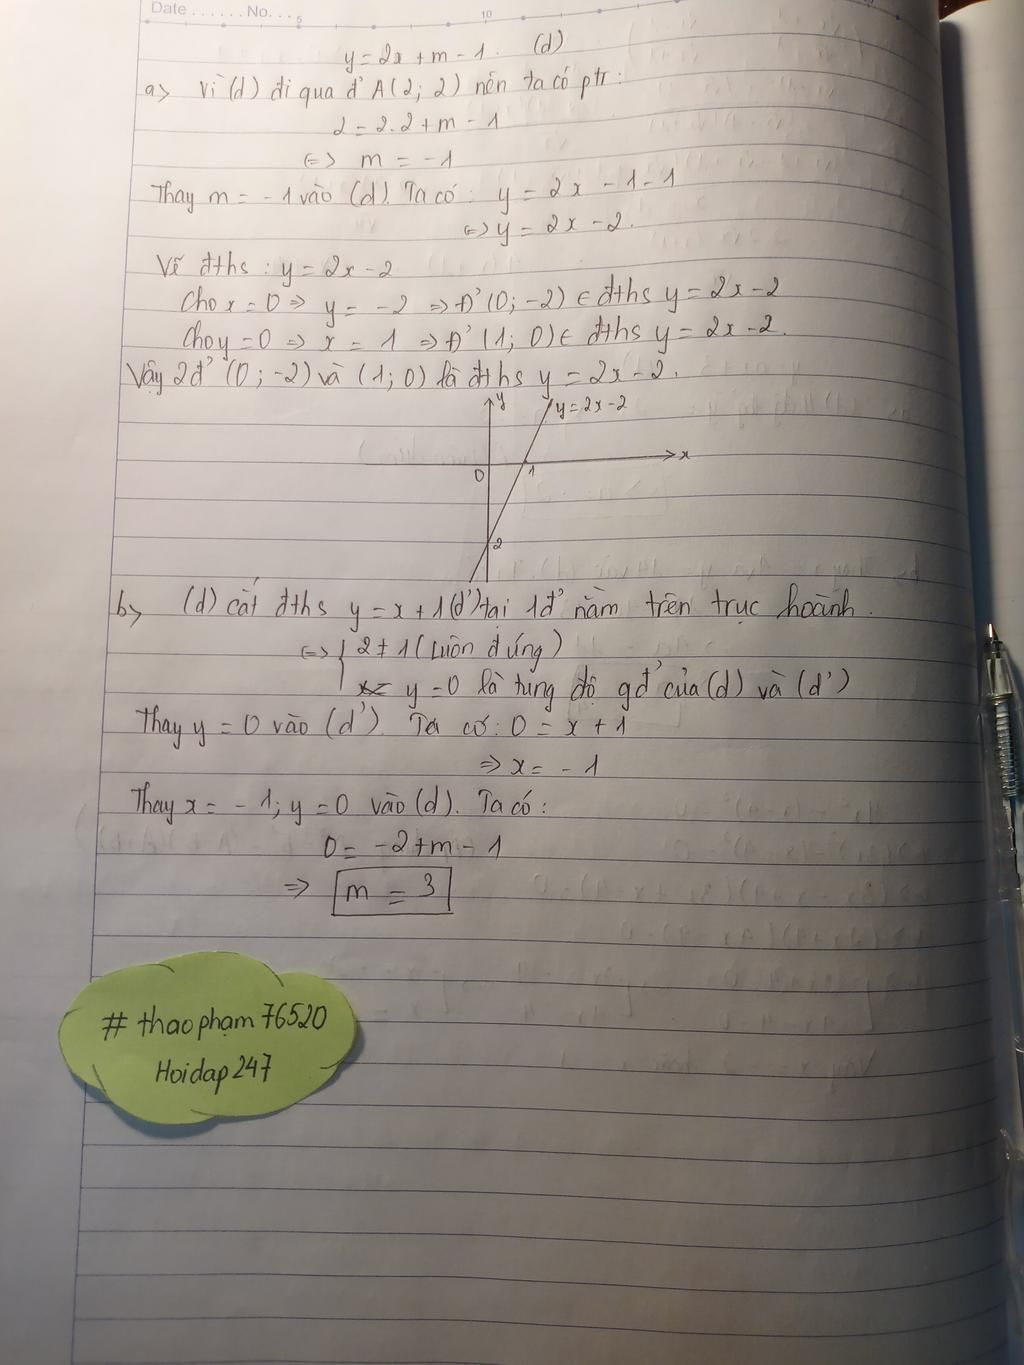 Date . . . . . . No. . .
5
10
y = 2x + m - 1. (d)
a> Vì (d) đi qua đ' A(2; 2) nên ta có ptr :
2 = 2.2 + m - 1
<=> m = -1
Thay m = - 1 vào (d). Ta có : y = 2x - 1 - 1
<=> y = 2x - 2.
Vẽ đths : y = 2x - 2
Cho x = 0 => y = -2 => Đ' (0; -2) ∈ đths y = 2x - 2
Cho y = 0 => x = 1 => Đ' (1; 0) ∈ đths y = 2x - 2.
Vậy 2đ' (0; -2) và (1; 0) là đths y = 2x - 2.
y
y = 2x - 2
x
0
1
2
b> (d) cắt đths y = x + 1 (d') tại 1đ' nằm trên trục hoành.
<=> { 2 ≠ 1 (luôn đúng)
y = 0 là tung độ gđ' của (d) và (d')
Thay y = 0 vào (d'). Ta có : 0 = x + 1
=> x = - 1
Thay x = - 1; y = 0 vào (d). Ta có :
0 = -2 + m - 1
=> m = 3
# thaophạm76520
Hoidap247